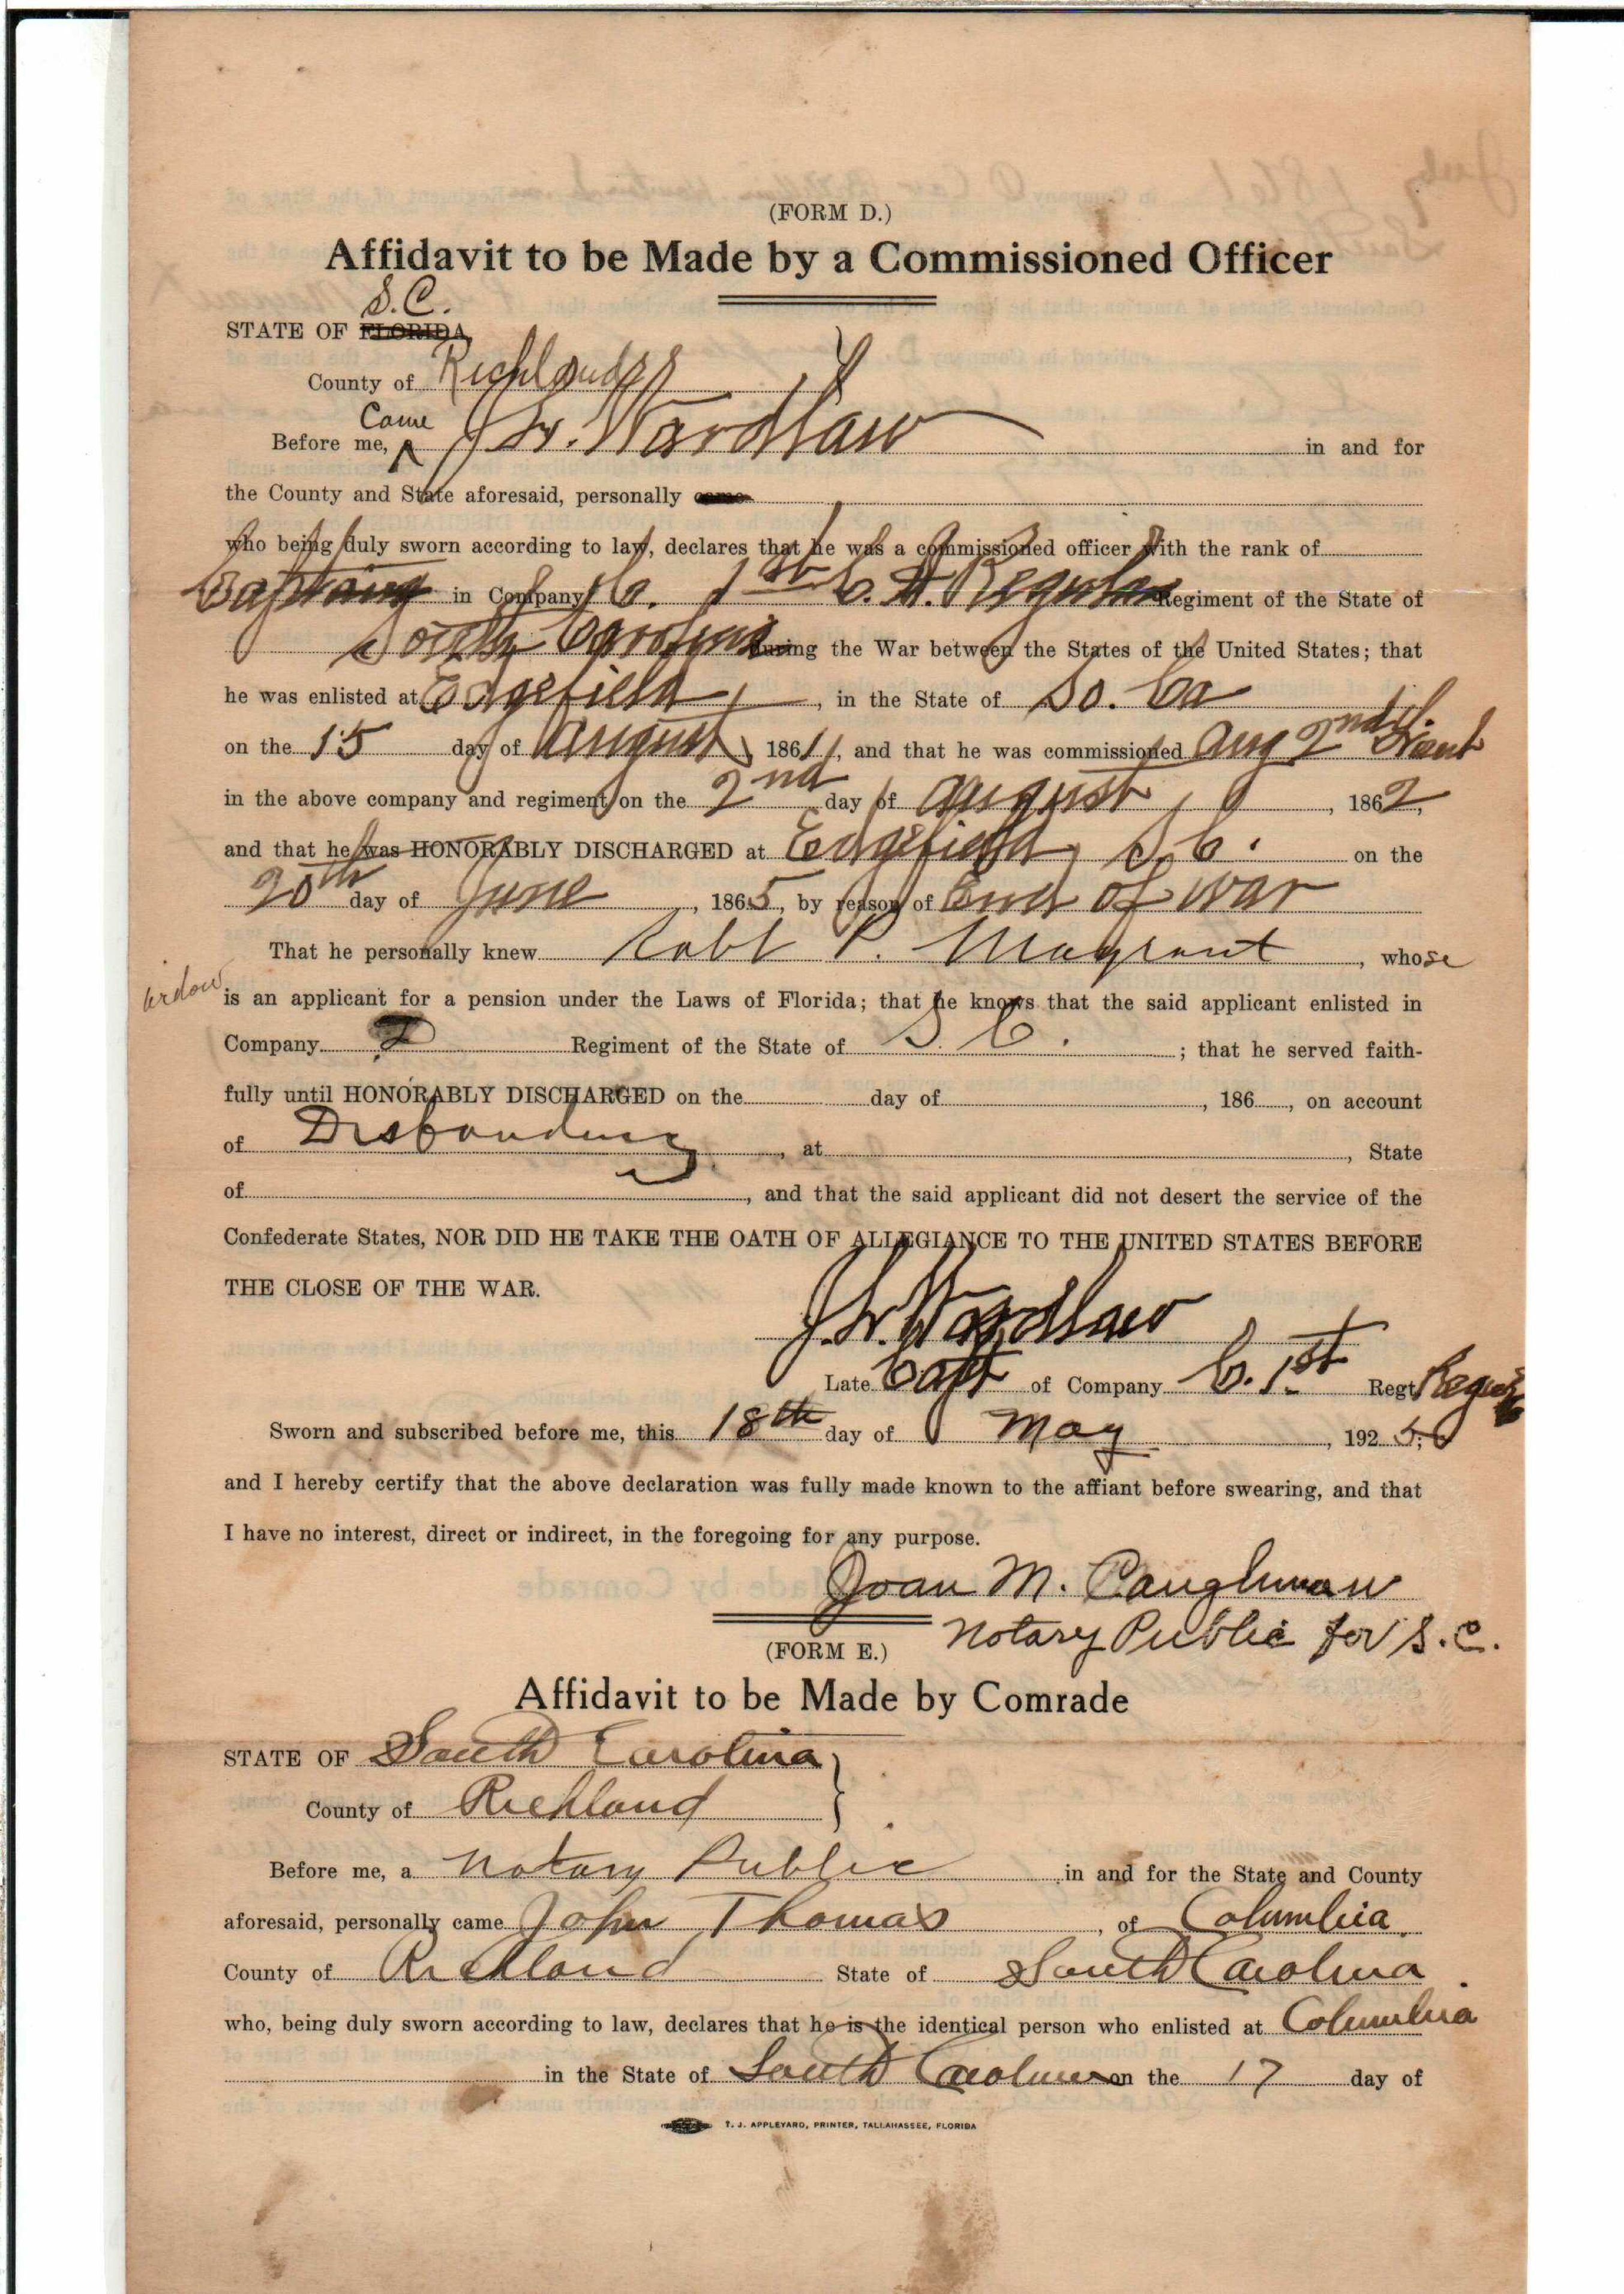 (FORM D.)
Affidavit to be Made by a Commissioned Officer
S.C.
STATE OF FLORIDA
County of Richland
Came
Before me, J. W. Wardlaw in and for
the County and State aforesaid, personally came
who being duly sworn according to law, declares that he was a commissioned officer with the rank of
Captain in Company C. 1st C. A. Regular Regiment of the State of
South Carolina during the War between the States of the United States; that
he was enlisted at Edgefield, in the State of So. Ca
on the 15 day of August, 1861, and that he was commissioned Aug 2nd
in the above company and regiment on the 2nd day of August, 1862,
and that he was HONORABLY DISCHARGED at Edgefield, S. C. on the
20th day of June, 1865, by reason of End of war
That he personally knew Robt P. Maynant, whose
widow is an applicant for a pension under the Laws of Florida; that he knows that the said applicant enlisted in
Company Regiment of the State of S. C. ; that he served faith-
fully until HONORABLY DISCHARGED on the day of , 186 , on account
of Disbanding, at , State
of , and that the said applicant did not desert the service of the
Confederate States, NOR DID HE TAKE THE OATH OF ALLEGIANCE TO THE UNITED STATES BEFORE
THE CLOSE OF THE WAR.
J. W. Wardlaw
Late Capt of Company C. 1st Regt Regular
Sworn and subscribed before me, this 18th day of May, 1925;
and I hereby certify that the above declaration was fully made known to the affiant before swearing, and that
I have no interest, direct or indirect, in the foregoing for any purpose.
Joan M. Caughman
Notary Public for S.C.
(FORM E.)
Affidavit to be Made by Comrade
STATE OF South Carolina
County of Richland
Before me, a Notary Public in and for the State and County
aforesaid, personally came John Thomas, of Columbia
County of Richland State of South Carolina.
who, being duly sworn according to law, declares that he is the identical person who enlisted at Columbia
in the State of South Carolina on the 17 day of
T. J. APPLEYARD, PRINTER, TALLAHASSEE, FLORIDA